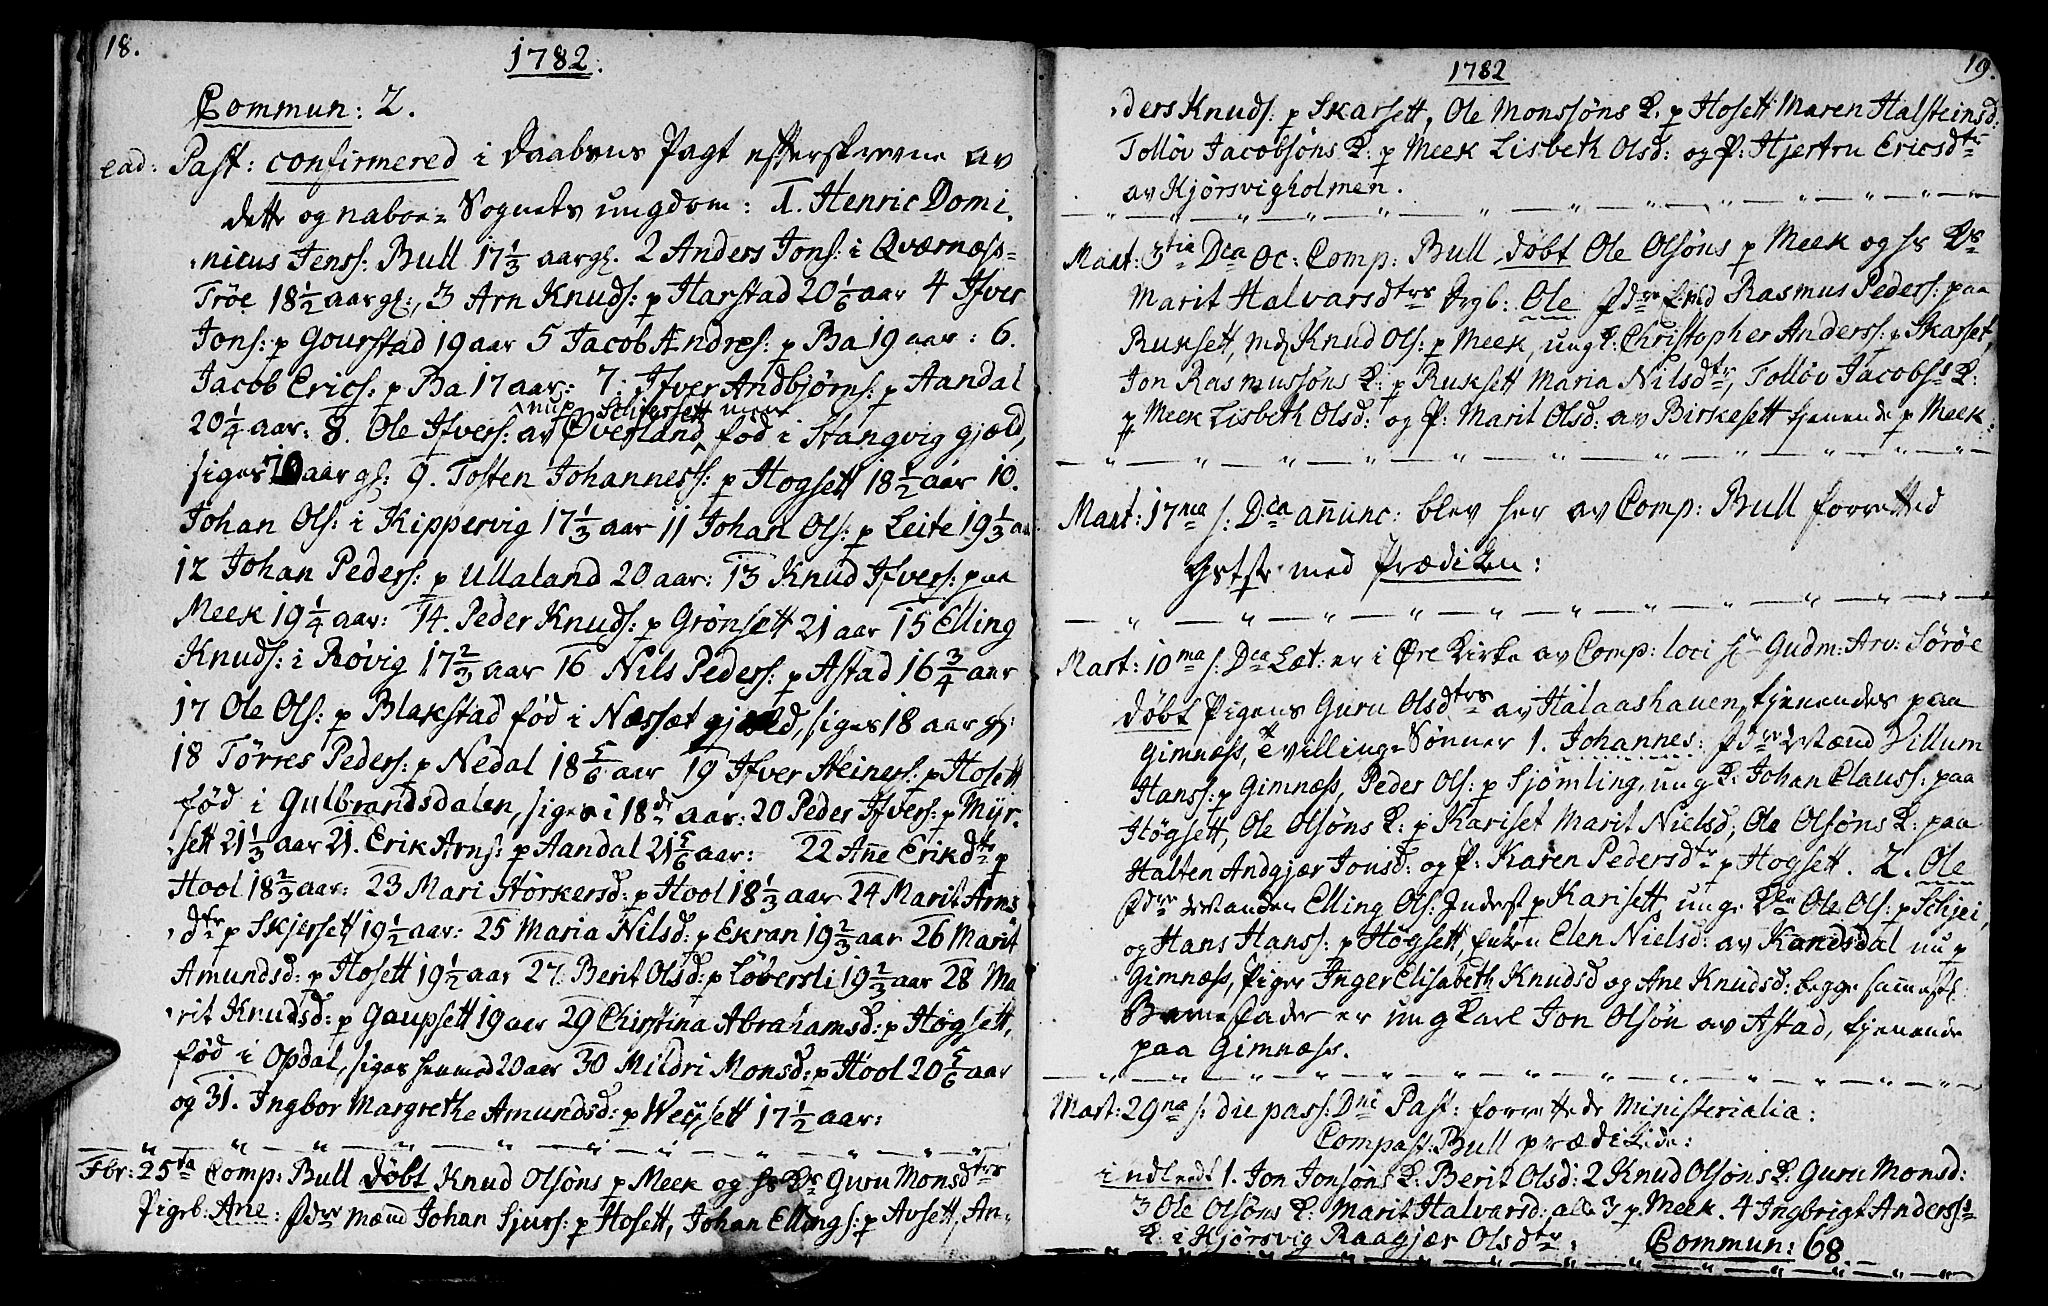 18.
1782.
Commun: 2.
ead: Past: confirmered i Daabens Pagt efterskrevne av
dette og naboe- Sognets ungdom: 1. Henric Domi-
nicus Jenss: Bull 17 1/3 aargl. 2 Anders Jons: i Qværnæss-
Tröe 18 1/2 aargl:, 3 Arn Knuds: p Harstad 20 1/6 aar 4 Ifver
Jons: p Gourstad 19 aar 5 Jacob Andres: p Ba 19 aar: 6.
Jacob Erics: p Ba 17 aar: 7. Ifver Andbjörns: p Aandal
nu p Schjersett
20 1/4 aar: 8. Ole Ifvers: av Øverland, föd i Stangvig gjæld,
siges aar gl: 9. Tosten Johanness: p Hogsett 18 1/2 aar 10.
Johan Ols: i Kippervig 17 1/3 aar 11 Johan Ols: p Leite 19 1/3 aar
12 Johan Peders: p Ullaland 20 aar: 13 Knud Ifvers: paa
Meek 19 1/4 aar: 14. Peder Knuds: p Grönsett 21 aar 15 Elling
Knuds: i Rövig 17 2/3 aar 16 Nils Peders: p Astad 16 3/4 aar
17 Ole Ols: p Blakstad föd i Næsset gjæld, siges 18 aar gl:
18 Törres Peders: p Nedal 18 5/6 aar 19 Ifver Steiners: p Hosett
föd i Gulbrandsdalen, siges i 18de aar: 20 Peder Ifvers: p Myr-
sett 21 1/3 aar 21. Erik Arns: p Aandal 21 5/6 aar: 22 Añe Erikdtr p
Hool 18 2/3 aar: 23 Mari Störkersd: p Hool 18 1/3 aar 24 Marit Arns
dtr p Skjersett 19 1/2 aar: 25 Maria Nilsd: p Ekran 19 2/3 aar 26 Marit
Amundsd: p Hosett 19 1/2 aar 27. Berit Olsd: p Löversli 19 2/3 aar 28 Ma
rit Knudsd: p Gaupsett 19 aar 29 Christina Abrahamsd: p Högsett,
föd i Opdal, siges henved 20 aar 30 Mildri Monsd: p Hool 20 5/6 aar
og 31. Ingbor Margrethe Amundsd: p Weysett 17 1/2 aar:
Fbr: 25ta Comp: Bull döbt Knud Olsöns p Meek og hs Qs Guru Monsdtrs
Pigeb: Ane: Fdre mænd Johan Sjurs: p Hosett, Johan Ellings: p Avsett, An-
1782
19.
ders Knuds: p Skarsett, Ole Monssöns Q. p Hosett Maren Halsteinsd:
Tollöv Jacobsöns Q: p Meek Lisbeth Olsd: og P: Hjertru Ericsdtr
av Kjörsvigholmen.
Mart: 3tia Dca Oc: Comp: Bull döbt Ole Olsöns p Meek og hs Qs
Marit Halvarsdtrs drgb: Ole Fdre Rasmus Peders: paa
Ruksett, Knud Ols: p Meek, ung k: Christopher Anderss: p Skarset,
Jon Rasmussöns Q: p Ruksett Maria Nilsdtr, Tollöv Jacobss Q:
p Meek Lisbeth Olsd: og P: Marit Olsd: av Birkesett tjenende p Meek:
Mart: 17na s: Dca añunc: blev her av Comp: Bull forretted
Gstste med Prædiken:
Mart: 10ma s: Dca Læt: er i Øre Kirke av Comp: loci Hr Gudm: Arv: Söröe
döbt Pigens Guru Olsdtrs av Halaashauen, tjenendes paa
Gimnæss, tvillinge Sönner 1. Johannes: Fdre Mænd Villum
Hanss: p Gimnæss, Peder Ols: p Sjömling, ung k: Johan Clauss: paa
Högsett, Ole Olsöns Q: p Kariset Marit Nielsd, Ole Olsöns Q: paa
Halten Andgjær Jonsd: og P: Karen Pedersdtr p Hogsett. 2. Ole
Fdre Manden Elling Ols: Inderst p Karisett ung Ole Ols: p Schjei,
og Hans Hanss: p Högsett, Enken Elen Nielsd: av Kandsdal nu p
Gimnæss, Piger Inger Elisabeth Knudsd og Ane Knudsd: begge sammest:
Barnefader er ung karl Jon Olsön av Astad, tjenende
paa Gimnæss.
Mart: 29na s: die pass: Dni Past: forrettede Ministerialia:
Compast: Bull prædikede:
indledt 1. Jon Jonsöns Q: Berit Olsd: 2 Knud Olsöns Q: Guru Monsd:
3 Ole Olsöns Q: Marit Halvarsd: alle 3 p. Meek. 4 Ingbrigt Anderss:
Q. i Kjörsvig Raagjær Olsdtr: Commun: 68.